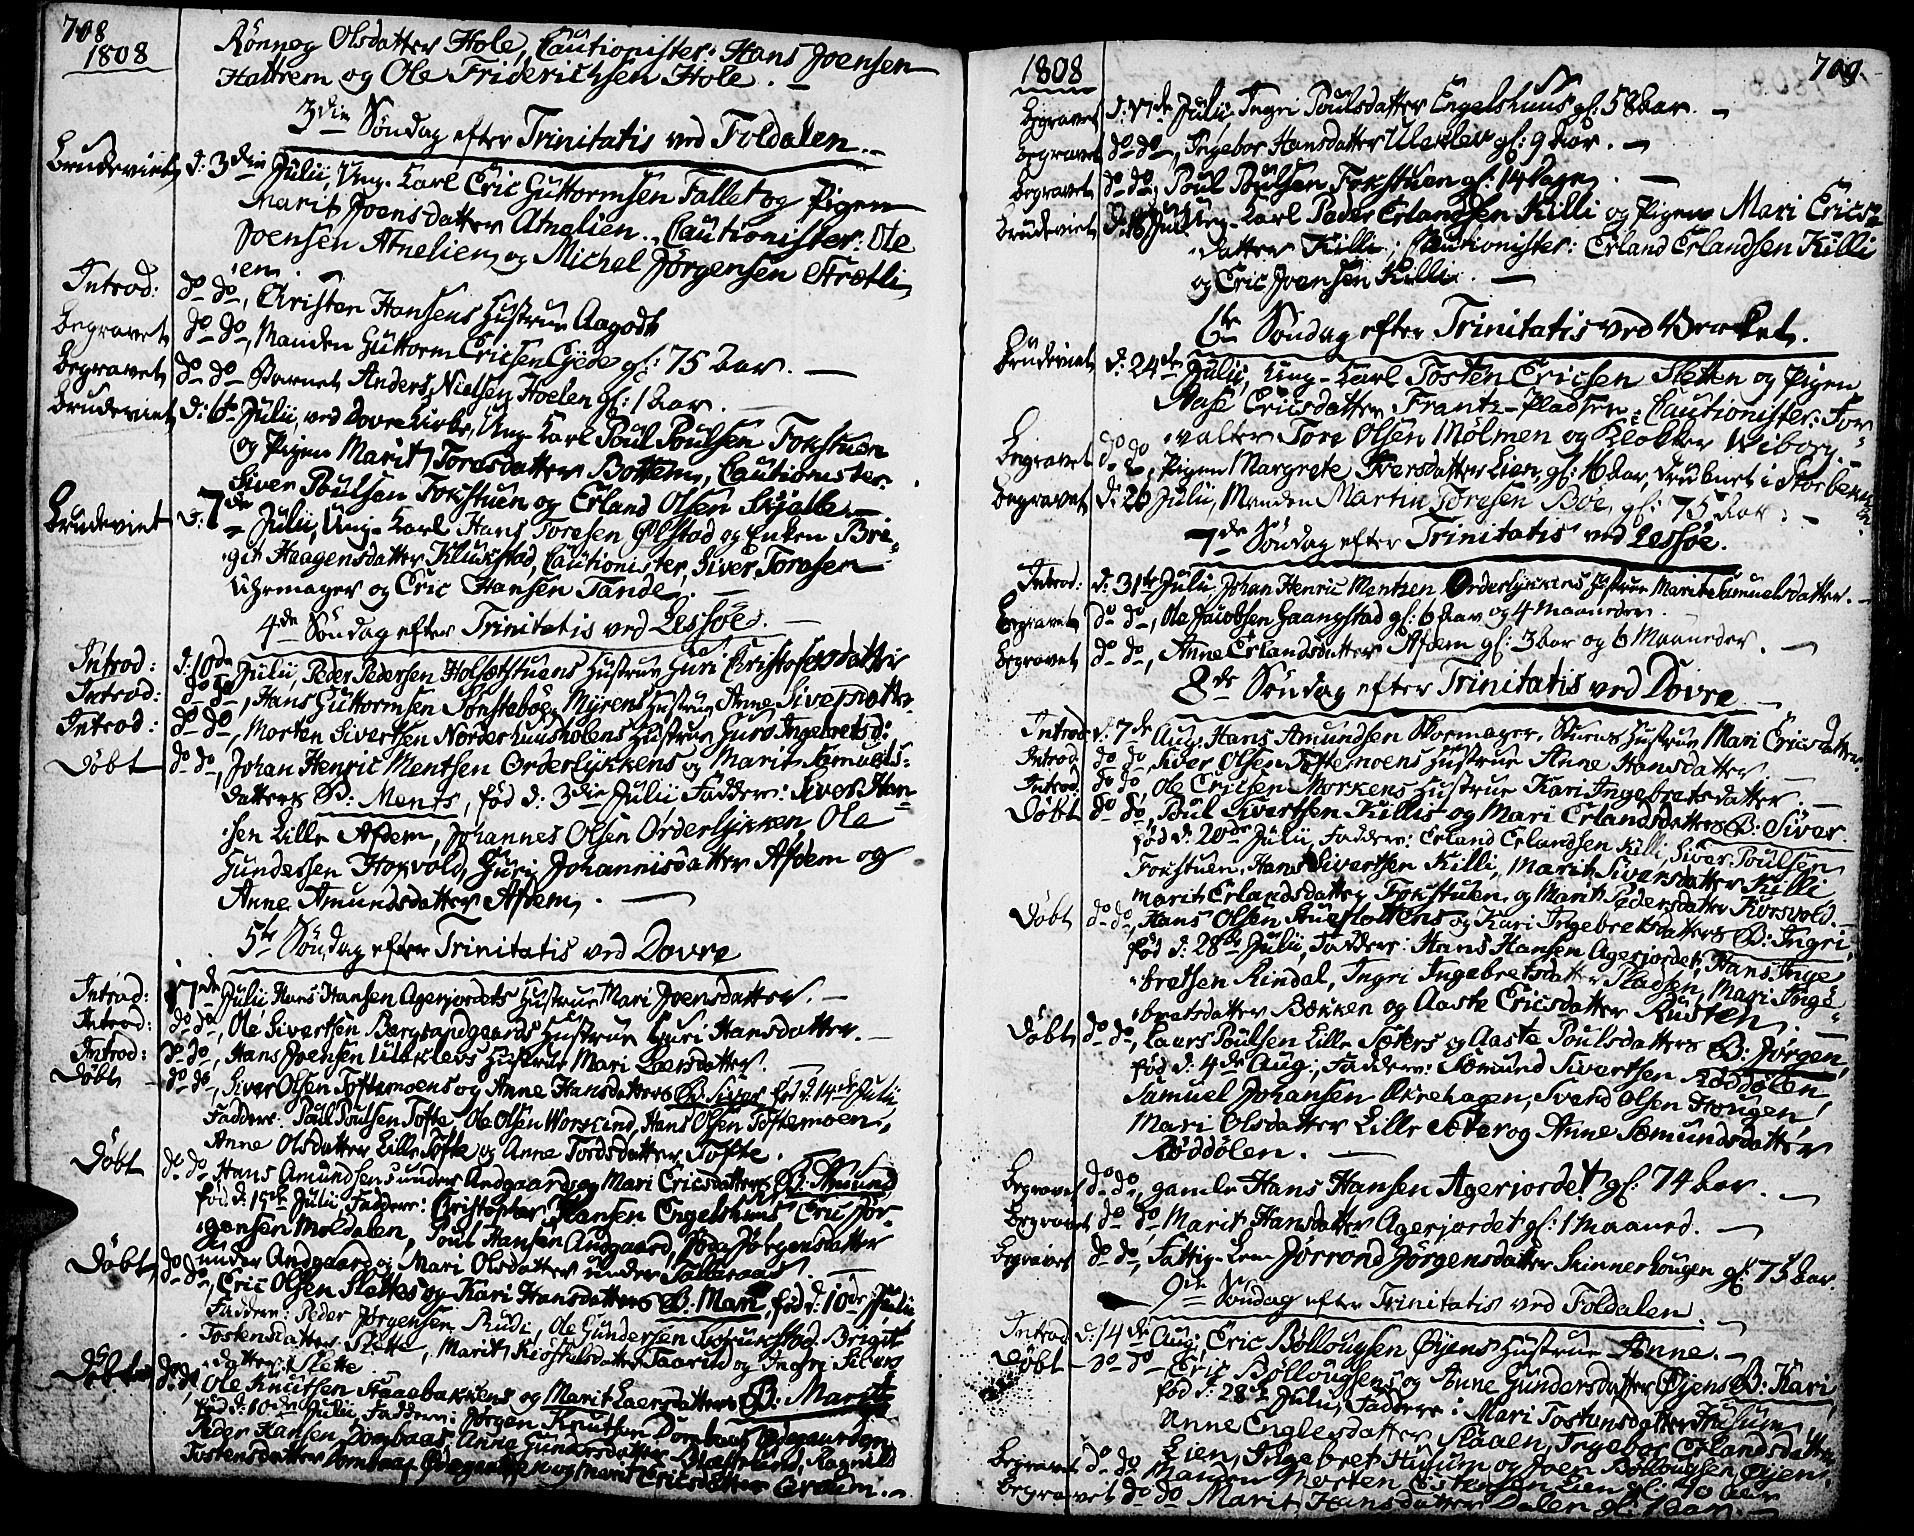 708
1808
Rönnog Olsdatter Hole, Cautionister: Hans Joensen
Hattrem og Ole Friderichsen Hole. —
3die Söndag efter Trinitatis ved Foldalen. —
Brudeviet d: 3die Julii, Ung-Karl Eric Guttormsen Fallet og Pigen
Marit Joensdatter Atnelien. Cautionister: Ole
Joensen Atnelien og Michel Jörgensen Strætli
en.
Introd: do do, Christen Hansens Hustrue Aagodt
Begravet do do, Manden Guttorm Ericsen gl: 75 Aar. —
Begravet do do Barnet Anders Nielsen Hoelen gl: 1 Aar. —
Brudeviet d: 6te Julii, ved Dovre Kirke, Ung-Karl Poul Poulsen Fokstuen
og Pigen Marit Toresdatter Bottem, Cautionister:
Siver Poulsen Fokstuen og Erland Olsen Skjelle. —
Brudeviet d: 7de Julii, Ung-Karl Hans Toresen Ölstad og Enken Bri-
git Haagensdatter Klukstad, Cautionister, Siver Toresen
Uhrmager og Eric Hansen Tande. —
4de Söndag efter Trinitatis ved Lessöe. —
Introd: d: 10de Julii, Peder Pedersen Holsetstuens Hustrue Guri Kristofersdatter
Introd: do do, Hans Guttormsen Tönsteböe Myrens Hustrue Anne Siversdatter
Introd: do do, Morten Sivertsen Norderhuusholens Hustrue Guro Ingebretsd:
Döbt do do, Johan Henric Mentsen Orderlykkens og Marit Samuels-
datters B: Ments, föd d: 3die Julii Faddere: Siver Han-
sen Lille Afdem, Johannes Olsen Orderlykken, Ole
Gundersen Horvold, Guri Johannisdatter Afdem og
Anne Amundsdatter Afdem. —
5te Söndag efter Trinitatis ved Dovre
Introd: 17de Julii Hans Hansen Agerjordets Hustrue Mari Joensdatter. —
Introd: do do, Ole Sivertsen Bergsandgaards Hustrue Guri Hansdatter. —
Introd: do do, Hans Joensen Uleklevs Hustrue Mari Laersdatter. —
Döbt do do, Siver Olsen Toftemoens og Anne Hansdatters B: Siver föd d: 14de Julii
Faddere: Poul Poulsen Tofte, Ole Olsen Workind, Hans Olsen Toftemoen,
Anne Olsdatter Lille Tofte og Anne Tordsdatter Tofte.
Döbt do do Hans Amundsens under Andgaard og Mari Ericsdatters B: Amund
föd d: Julii Faddere: Christopher Hansen Engelshuus Eric Jör-
gensen Moldalen, Poul Hansen Andgaard, Jörgensdatter
under Andgaard og Mari Olsdatter under Talleraas. —
Döbt do do, Eric Olsen Slettes og Kari Hansdatters B: Mari, föd d: 10de Julii
Faddere: Peder Jörgensen Rudi, Ole Gundersen Brigit
Tostensdatter Slette, Marit Taarud og Ingri Sivers
datter Slette.
Döbt do do Ole Knutsen Staaebakkens og Marit Laersdatters B: Marit
föd d: 10de Julii, Faddere: Jörgen Knutsen Dombaas Ödegaarden
Peder Hansen Dombaas, Anne Gundersdatter Ragnild
Tostensdatter Dombaas og Marit Ericsdatter Gravm. —
1808 709.
Begravet d: 17de Julii, Ingri Poulsdatter Engelshuus gl: 58 Aar. —
Begravet do do, Ingebor Hansdatter Uleklev gl: 9 Aar. —
Begravet do do, Poul Poulsen Fokstuen gl: 14 Dage. —
Brudeviet d: Julii Ung-Karl Peder Erlandsen Killi og Pigen Mari Erics-
datter Killi, Cautionister: Erland Erlandsen Killi
og Eric Joensen Killi. —
6te Söndag efter Trinitatis ved Værket.
Brudeviet d: 24de Julii, Ung-Karl Tosten Ericsen Sletten og Pigen
Aase Ericsdatter Frantz-Pladsen: Cautionister: For-
valter Tore Olsen Mölmen og Klokker Wiborg. —
Begravet do do, Pigen Margrete Iversdatter Lien, gl: 16 Aar, druknet i
Begravet d: 26 Julii, Manden Martin Toresen Böe, gl: 75 Aar: —
7de Söndag efter Trinitatis ved Lessöe.
Introd: d: 31te Julii Johan Henric Mentzen Orderlykkens Hustrue Marit Samuelsdatter. —
Begravet do do, Ole Jacobsen Gaangstad gl: 6 Aar og 4 Maaneder.
Begravet do do, Anne Erlandsdatter Afdem gl: 3 Aar og 6 Maaneder. —
8de Söndag efter Trinitatis ved Dovre —
Introd: d: 7de Aug: Hans Amundsen Skomager Stuens Hustrue Mari Ericsdatter.
Introd do do Siver Olsen Toftemoens Hustrue Anne Hansdatter. —
Introd: do do, Ole Ericsen Morkens Hustrue Kari Ingebretsdatter. —
Döbt do do, Poul Sivertsen Killis og Mari Erlandsdatters B: Siver
föd d: 20de Julii, Faddere: Erland Erlandsen Killi, Siver Poulsen
Fokstuen, Hans Sivertsen Killi, Marit Siversdatter Killi
Marit Erlandsdatter Fokstuen og Marit Pedersdatter Korsvold. —
Döbt do do, Hans Olsen og Kari Ingebretsdatters B: Ingri,
föd d: 28de Julii, Faddere: Hans Hansen Agerjordet, Hans Inge
bretsen Rindal, Ingri Ingebretsdatter Pladsen, Mari Inge-
bretsdatter Bækken og Aaste Ericsdatter Rusten. —
Döbt do do, Laers Poulsen Lille Sæters og Aaste Poulsdatters B: Jörgen,
föd d: 4de Aug:, Faddere: Sæmund Sivertsen Röddölen
Samuel Johansen Ökrehagen, Svend Olsen Hougen,
Mari Olsdatter Lille Sæter og Anne Sæmundsdatter
Röddölen. —
Begravet do do, gamle Hans Hansen Agerjordet gl: 74 Aar. —
Begravet do do, Marit Hansdatter Agerjordet gl: 1 Maaned. —
Begravet do do, Fattig-Lem Jörrond Jörgensdatter Skinnerhougen gl: 75 Aar.
9de Söndag efter Trinitatis ved Foldalen. —
Introd d: 14de Aug: Eric Bollougsen Öyens Hustrue Anne. —
Döbt do do Eric Bollougsens og Anne Gundersdatter Öyens B: Kari
föd d: 28de Julii, Faddere: Mari Tostensdatter Husum,
Anne Englersdatter Slaaen, Ingebor Erlandsdatter
Lien, Ingebret Husum og Joen Bollougsen Öyen.
Begravet do do Manden Morten Estensen Lien gl: 40 Aar
Begravet do do Marit Hansdatter Dalen gl: 1 Aar. —